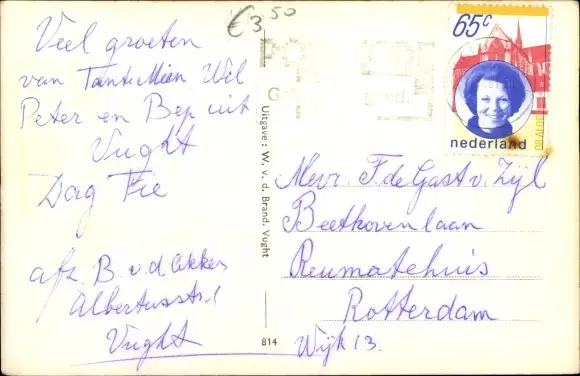 €3,50
Veel groeten
van Tante Mien Wil
Peter en Bep uit
Vught
Dag Fie
afz. B. v.d Akker
Albertusstr. 1
Vught
Uitgave: W. v. d. Brand. Vught
814
65c
nederland
30·IV·80
Mevr F. de Gast v. Zijl
Beethovenlaan
Reumatehuis
Rotterdam
Wijk 13.